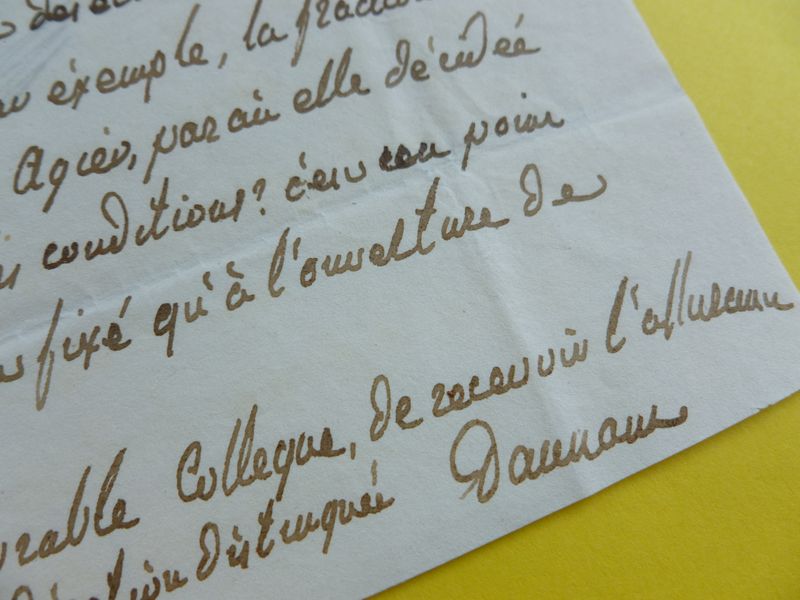 exemple, la fraction
Agier, paraît elle décidée
conditions? c'est un point
fixé qu'à l'ouverture de
urable Collegue, de recevoir l'assurance
distinguée Daunou